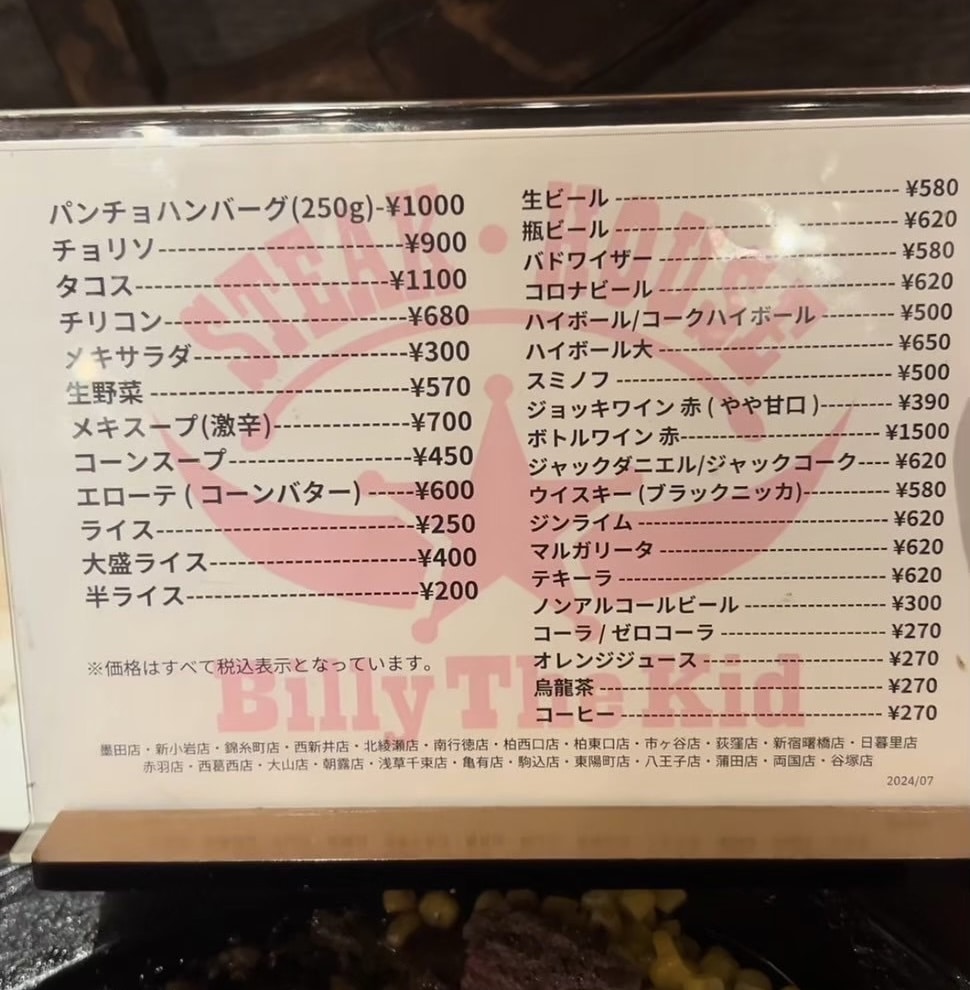 パンチョハンバーグ(250g)-¥1000
チョリソ---------------------------¥900
タコス----------------------------¥1100
チリコン--------------------------¥680
メキサラダ-----------------------¥300
生野菜 ----------------------------¥570
メキスープ(激辛)---------------¥700
コーンスープ--------------------¥450
エローテ ( コーンバター) -----¥600
ライス----------------------------¥250
大盛ライス-----------------------¥400
半ライス-------------------------¥200
※価格はすべて税込表示となっています。
生ビール -------------------------------- ¥580
瓶ビール -------------------------------- ¥620
バドワイザー --------------------------- ¥580
コロナビール --------------------------- ¥620
ハイボール/コークハイボール --------- ¥500
ハイボール大 --------------------------- ¥650
スミノフ -------------------------------- ¥500
ジョッキワイン 赤 ( やや甘口 )-------- ¥390
ボトルワイン 赤----------------------- ¥1500
ジャックダニエル/ジャックコーク---- ¥620
ウイスキー (ブラックニッカ)---------- ¥580
ジンライム ----------------------------- ¥620
マルガリータ --------------------------- ¥620
テキーラ -------------------------------- ¥620
ノンアルコールビール ---------------- ¥300
コーラ / ゼロコーラ ------------------- ¥270
オレンジジュース --------------------- ¥270
烏龍茶 ---------------------------------- ¥270
コーヒー ------------------------------- ¥270
STEAK・HOUSE
Billy The Kid
墨田店・新小岩店・錦糸町店・西新井店・北綾瀬店・南行徳店・柏西口店・柏東口店・市ヶ谷店・荻窪店・新宿曙橋店・日暮里店
赤羽店・西葛西店・大山店・朝霞店・浅草千束店・亀有店・駒込店・東陽町店・八王子店・蒲田店・両国店・谷塚店
2024/07